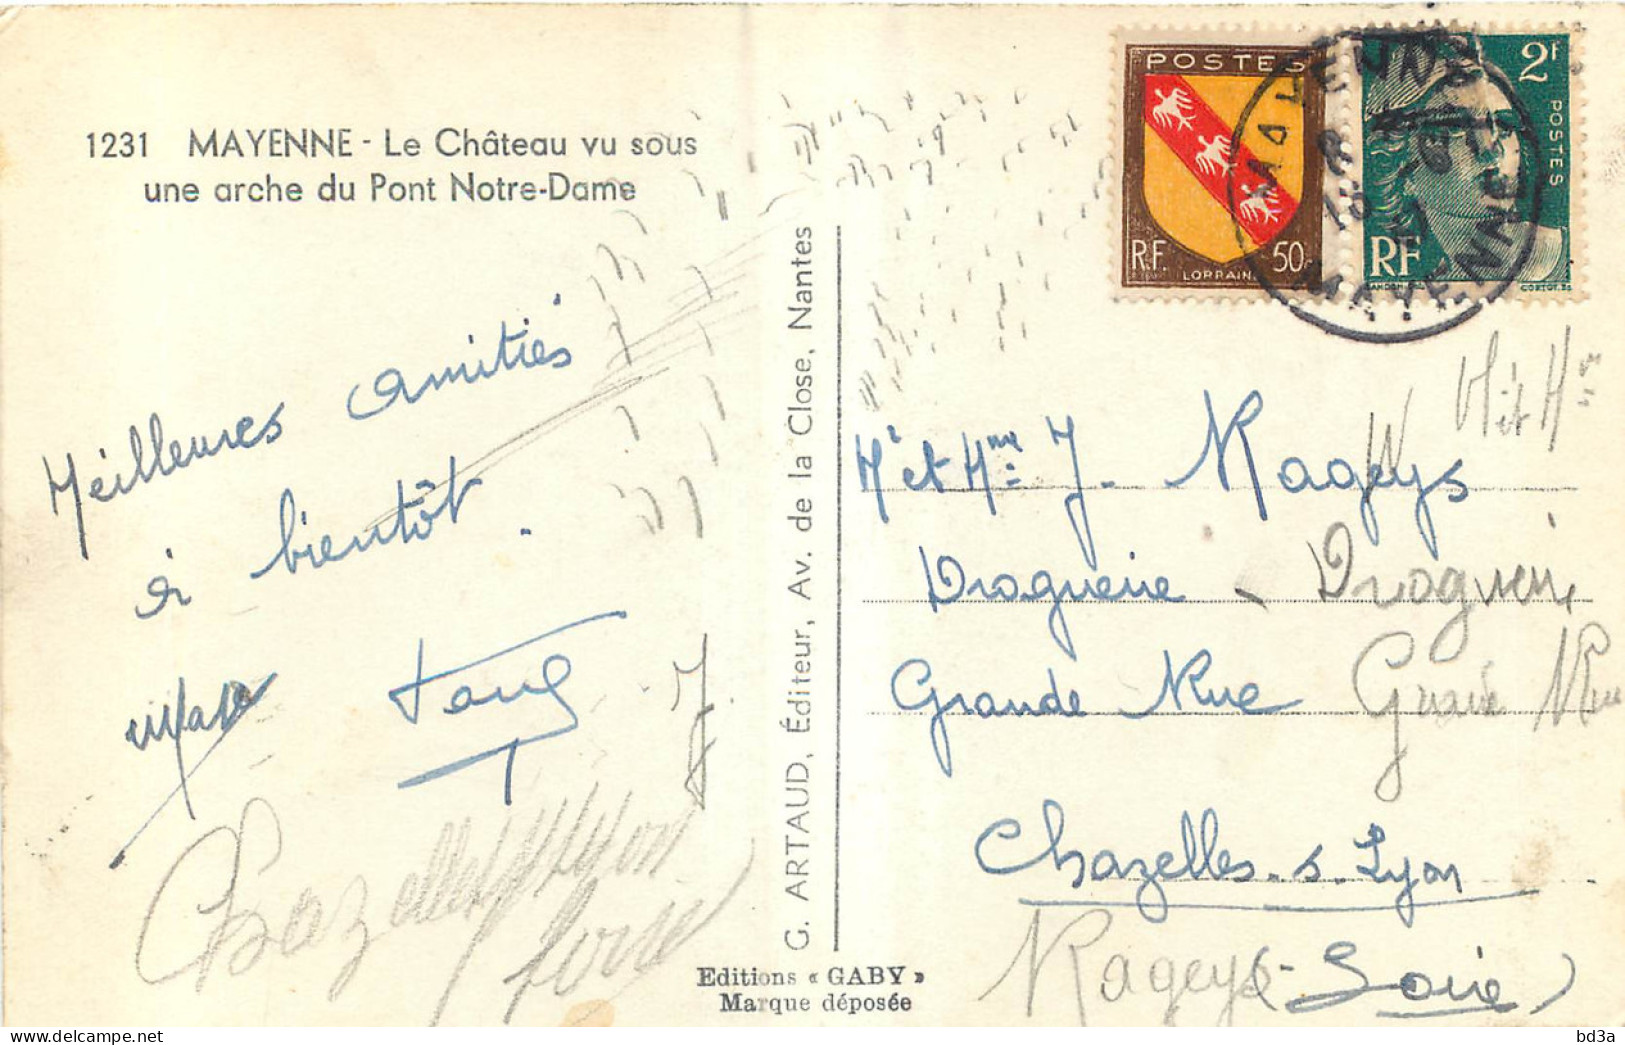 1231 MAYENNE - Le Château vu sous
une arche du Pont Notre-Dame
Meilleures amitiés
à bientôt.
G. ARTAUD, Éditeur, Av. de la Close, Nantes
Editions « GABY »
Marque déposée
POSTES
R.F. 50c
LORRAINE
2F
POSTES
RF
GANDON
CORTOT. SC
MAYENNE
MAYENNE
Mr et Mme J. Rageys
Droguerie - Droguerie
Grande Rue
Chazelles-s-Lyon
(Loire)
Mr et Mme
Rue
Chazelles s Lyon
Loire
Rageys
bd3a